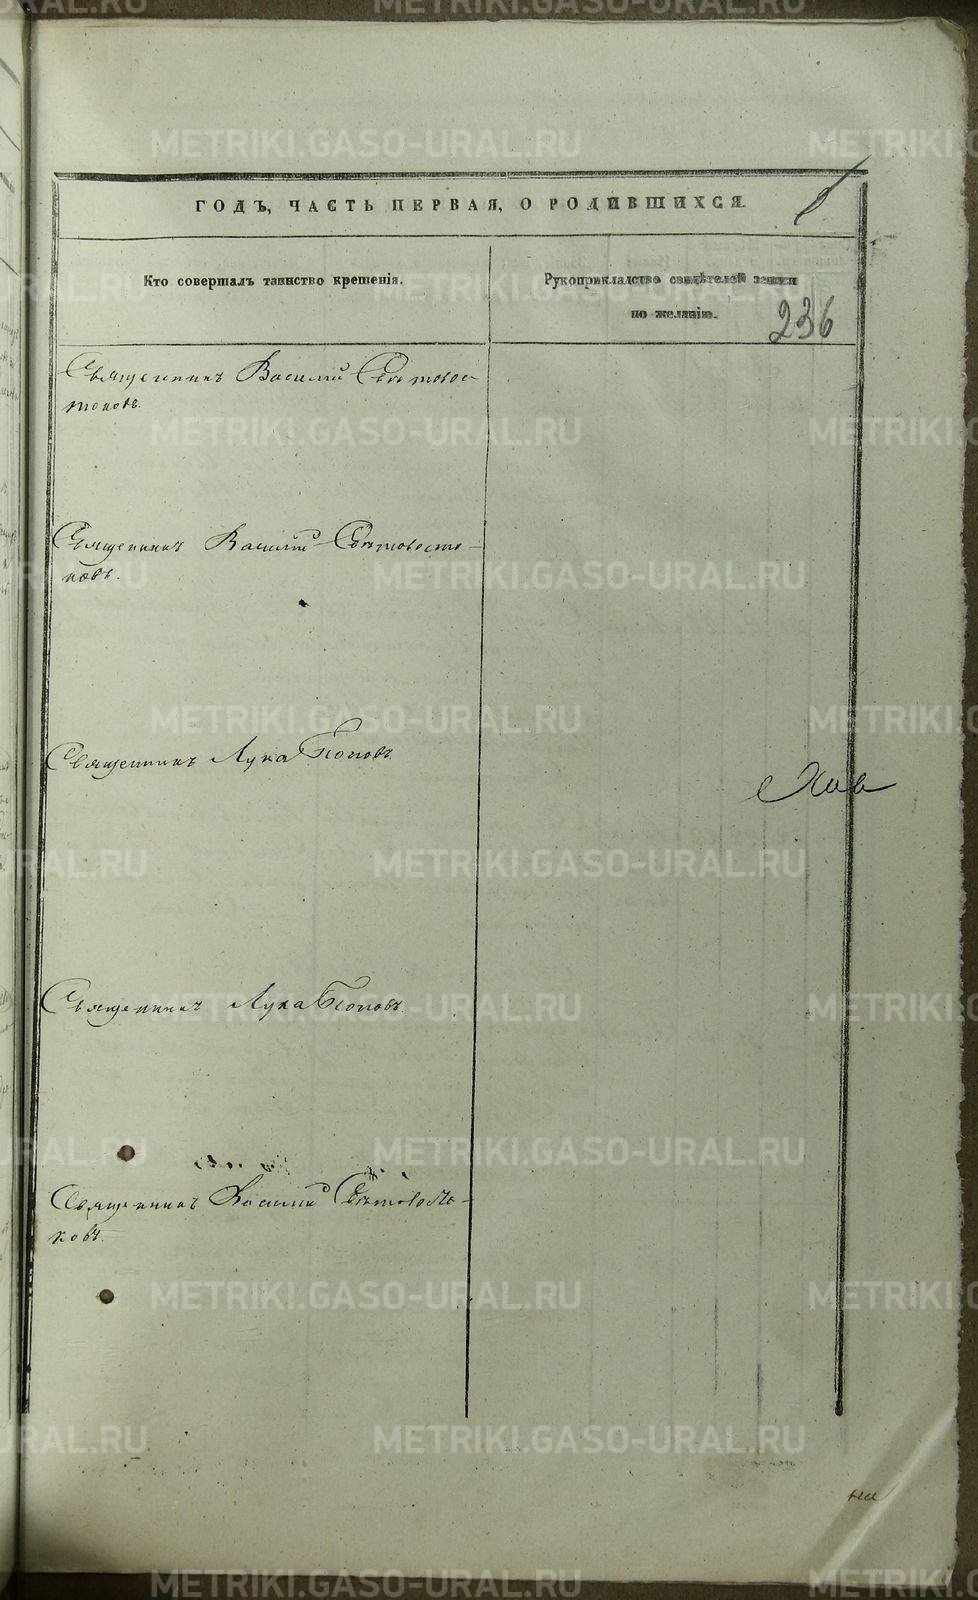 ГОДЪ, ЧАСТЬ ПЕРВАЯ, О РОДИВШИХСЯ.
Кто совершалъ таинство крещенія.
Рукоприкладство свидѣтелей записи
по желанію.
236
Священникъ Василій Свѣтовос-
токовъ.
Священникъ Василій Свѣтовосто-
ковъ.
Священникъ Лука Поповъ
Священникъ Лука Поповъ.
Священникъ Василій Свѣтовосто-
ковъ.
METRIKI.GASO-URAL.RU